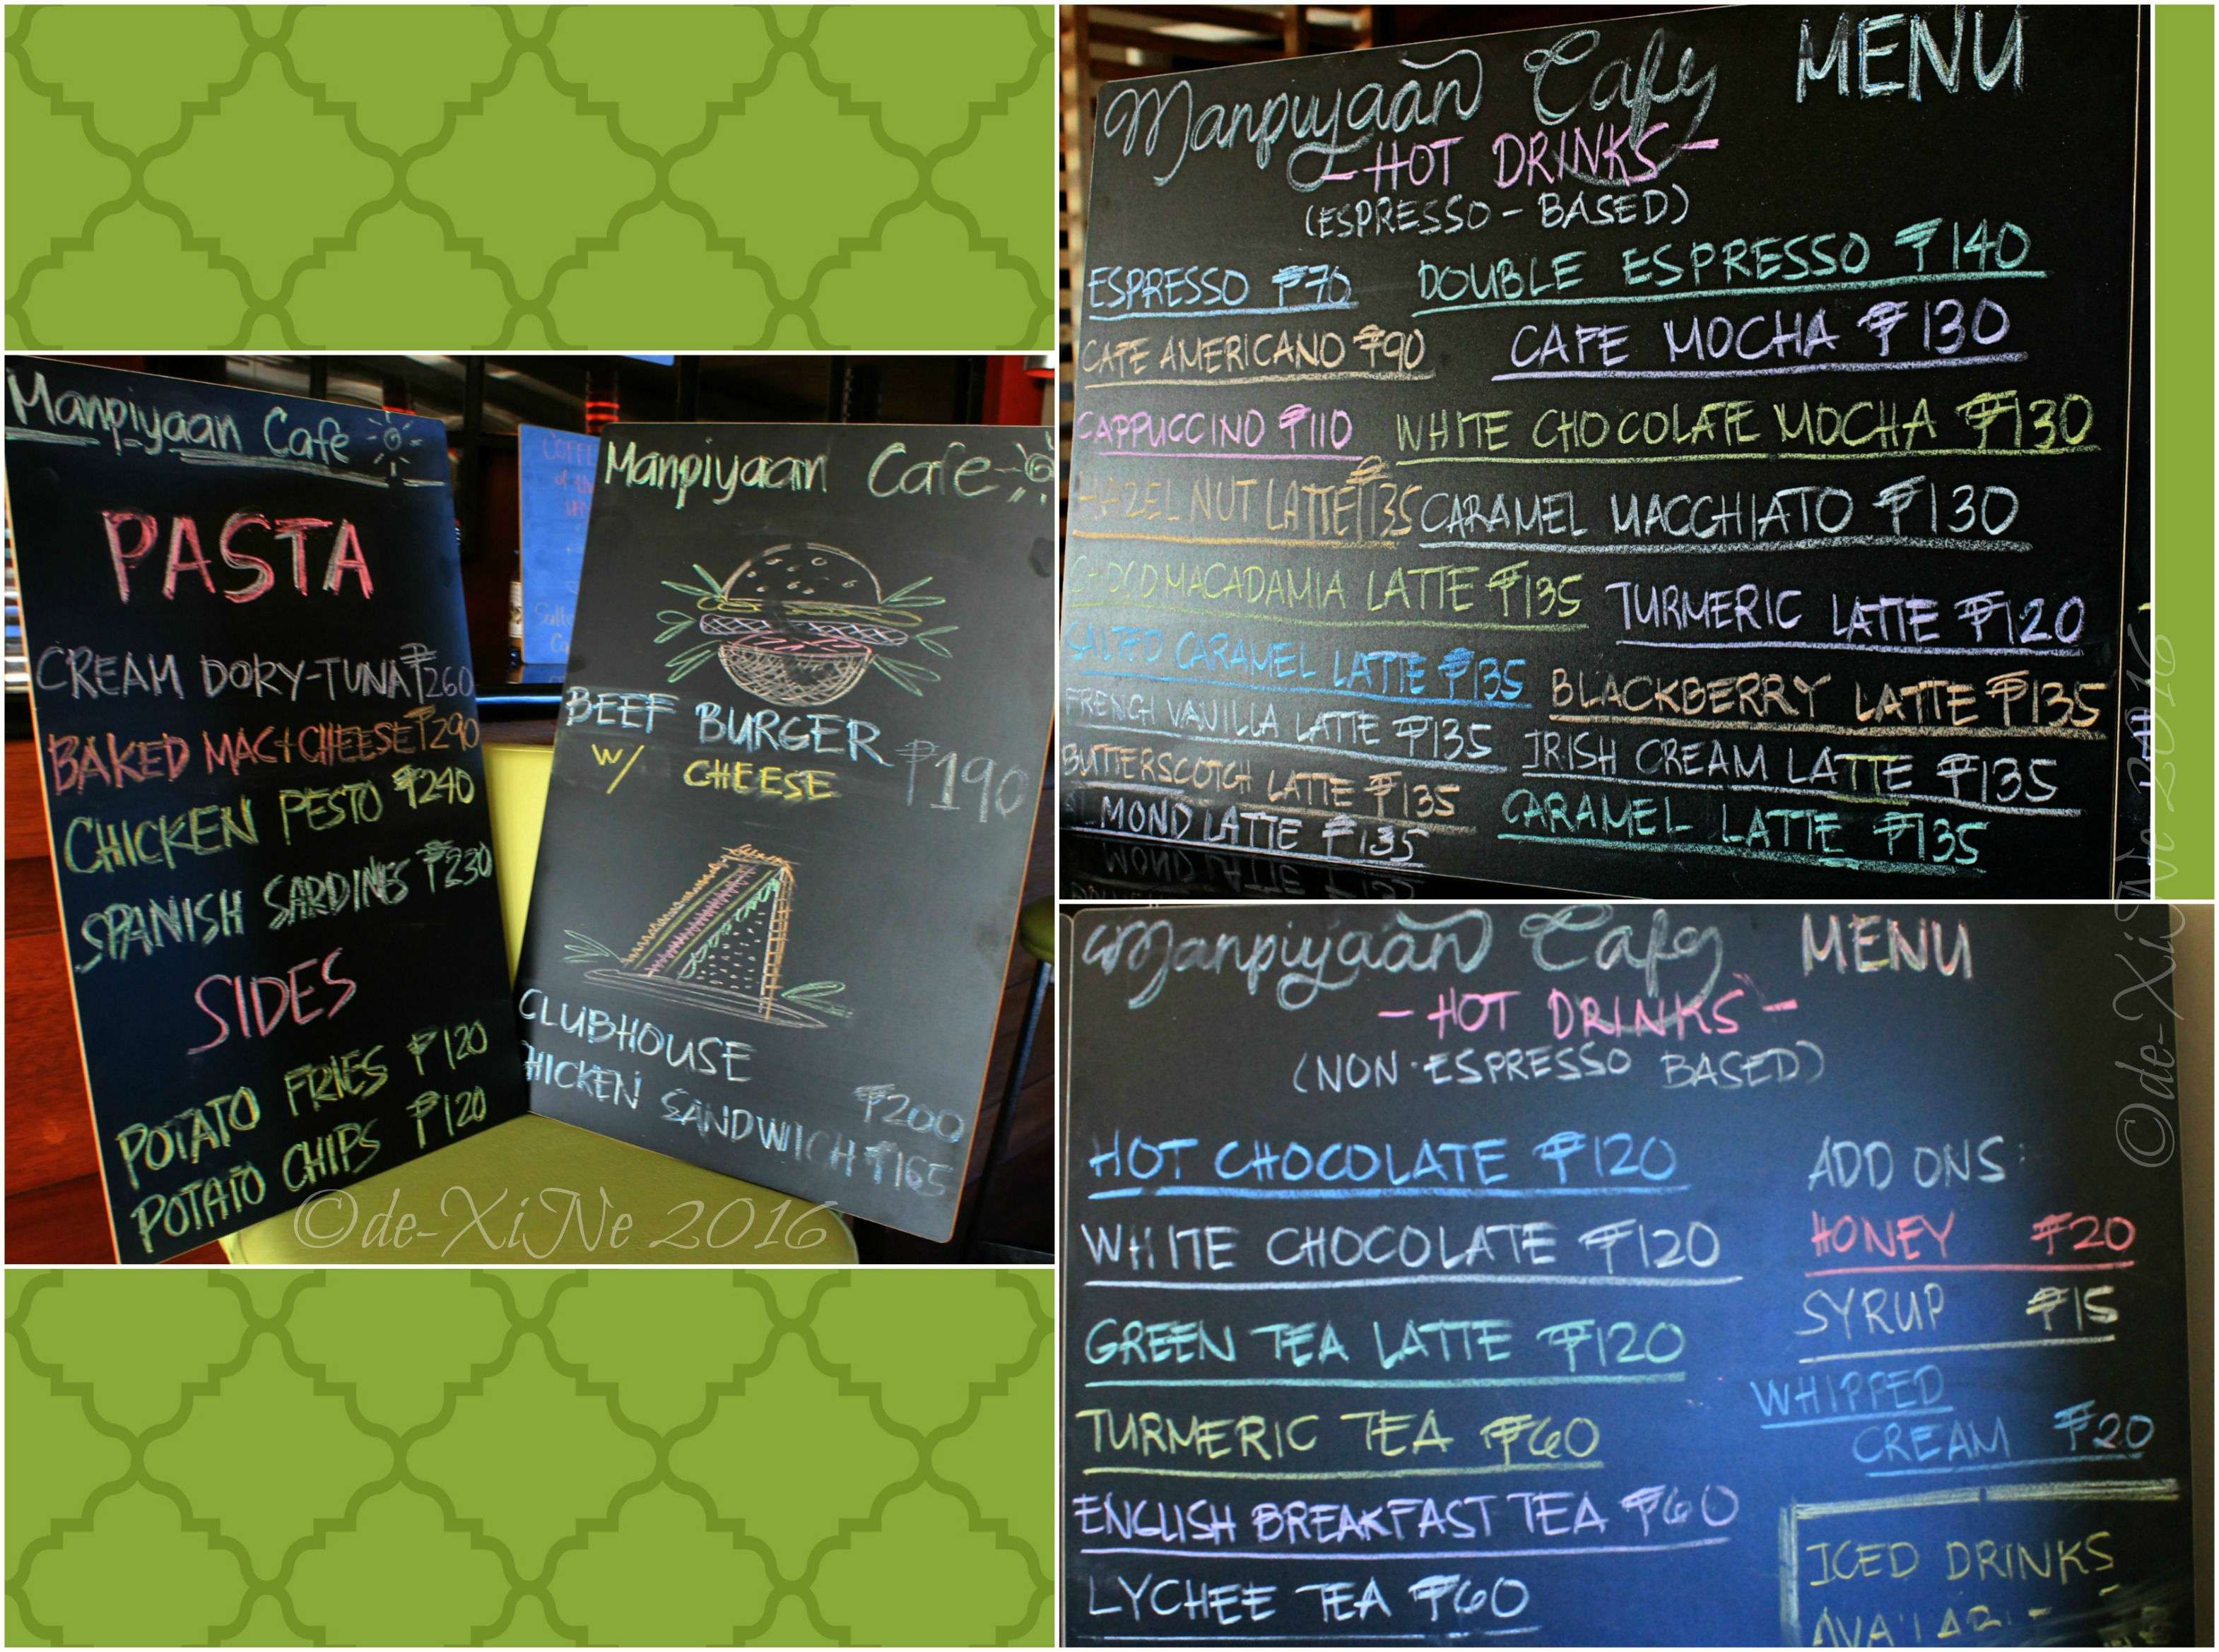 Manpiyaan Cafe
PASTA
CREAM DORY-TUNA ₱260
BAKED MAC+CHEESE ₱290
CHICKEN PESTO ₱240
SPANISH SARDINES ₱230
SIDES
POTATO FRIES ₱120
POTATO CHIPS ₱120
COFFE
Manpiyaan Cafe
BEEF BURGER
w/ CHEESE ₱190
CLUBHOUSE ₱200
HICKEN SANDWICH ₱165
©de-XiNe 2016
Manpiyaan Cafe MENU
- HOT DRINKS -
(ESPRESSO - BASED)
ESPRESSO ₱70 DOUBLE ESPRESSO ₱140
CAFE AMERICANO ₱90 CAFE MOCHA ₱130
CAPPUCCINO ₱110 WHITE CHOCOLATE MOCHA ₱130
HAZELNUT LATTE ₱135 CARAMEL MACCHIATO ₱130
CHOCO MACADAMIA LATTE ₱135 TURMERIC LATTE ₱120
SALTED CARAMEL LATTE ₱135 BLACKBERRY LATTE ₱135
FRENCH VANILLA LATTE ₱135 IRISH CREAM LATTE ₱135
BUTTERSCOTCH LATTE ₱135 CARAMEL LATTE ₱135
LMOND LATTE ₱135
Manpiyaan Cafe MENU
- HOT DRINKS -
(NON-ESPRESSO BASED)
HOT CHOCOLATE ₱120
WHITE CHOCOLATE ₱120
GREEN TEA LATTE ₱120
TURMERIC TEA ₱60
ENGLISH BREAKFAST TEA ₱60
LYCHEE TEA ₱60
ADD ONS:
HONEY ₱20
SYRUP ₱15
WHIPPED
CREAM ₱20
ICED DRINKS
©de-XiNe 2016